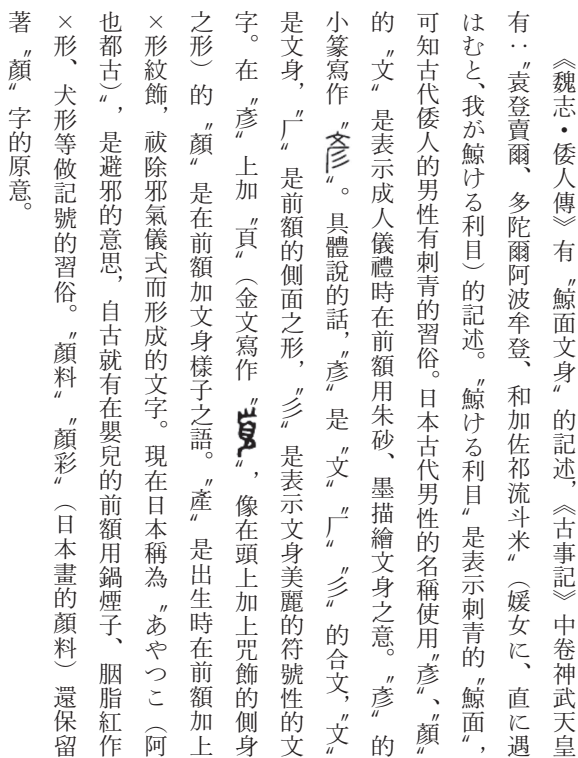 《魏志・倭人傳》有〝鯨面文身〞的記述，《古事記》中卷神武天皇
有：〝袁登賣爾、多陀爾阿波牟登、和加佐祁流斗米〞（媛女に、直に遇
はむと、我が鯨ける利目）的記述。〝鯨ける利目〞是表示刺青的〝鯨面〞，
可知古代倭人的男性有刺青的習俗。日本古代男性的名稱使用〝彥〞、〝顏〞
的〝文〞是表示成人儀禮時在前額用朱砂、墨描繪文身之意。〝彥〞的
小篆寫作〝〞。具體說的話，〝彥〞是〝文〞〝厂〞〝彡〞的合文，〝文〞
是文身，〝厂〞是前額的側面之形，〝彡〞是表示文身美麗的符號性的文
字。在〝彥〞上加〝頁〞（金文寫作〝〞，像在頭上加上咒飾的側身
之形）的〝顏〞是在前額加文身樣子之語。〝產〞是出生時在前額加上
×形紋飾，祓除邪氣儀式而形成的文字。現在日本稱為〝あやつこ（阿
也都古）〞，是避邪的意思，自古就有在嬰兒的前額用鍋煙子、胭脂紅作
×形、犬形等做記號的習俗。〝顏料〞〝顏彩〞（日本畫的顏料）還保留
著〝顏〞字的原意。